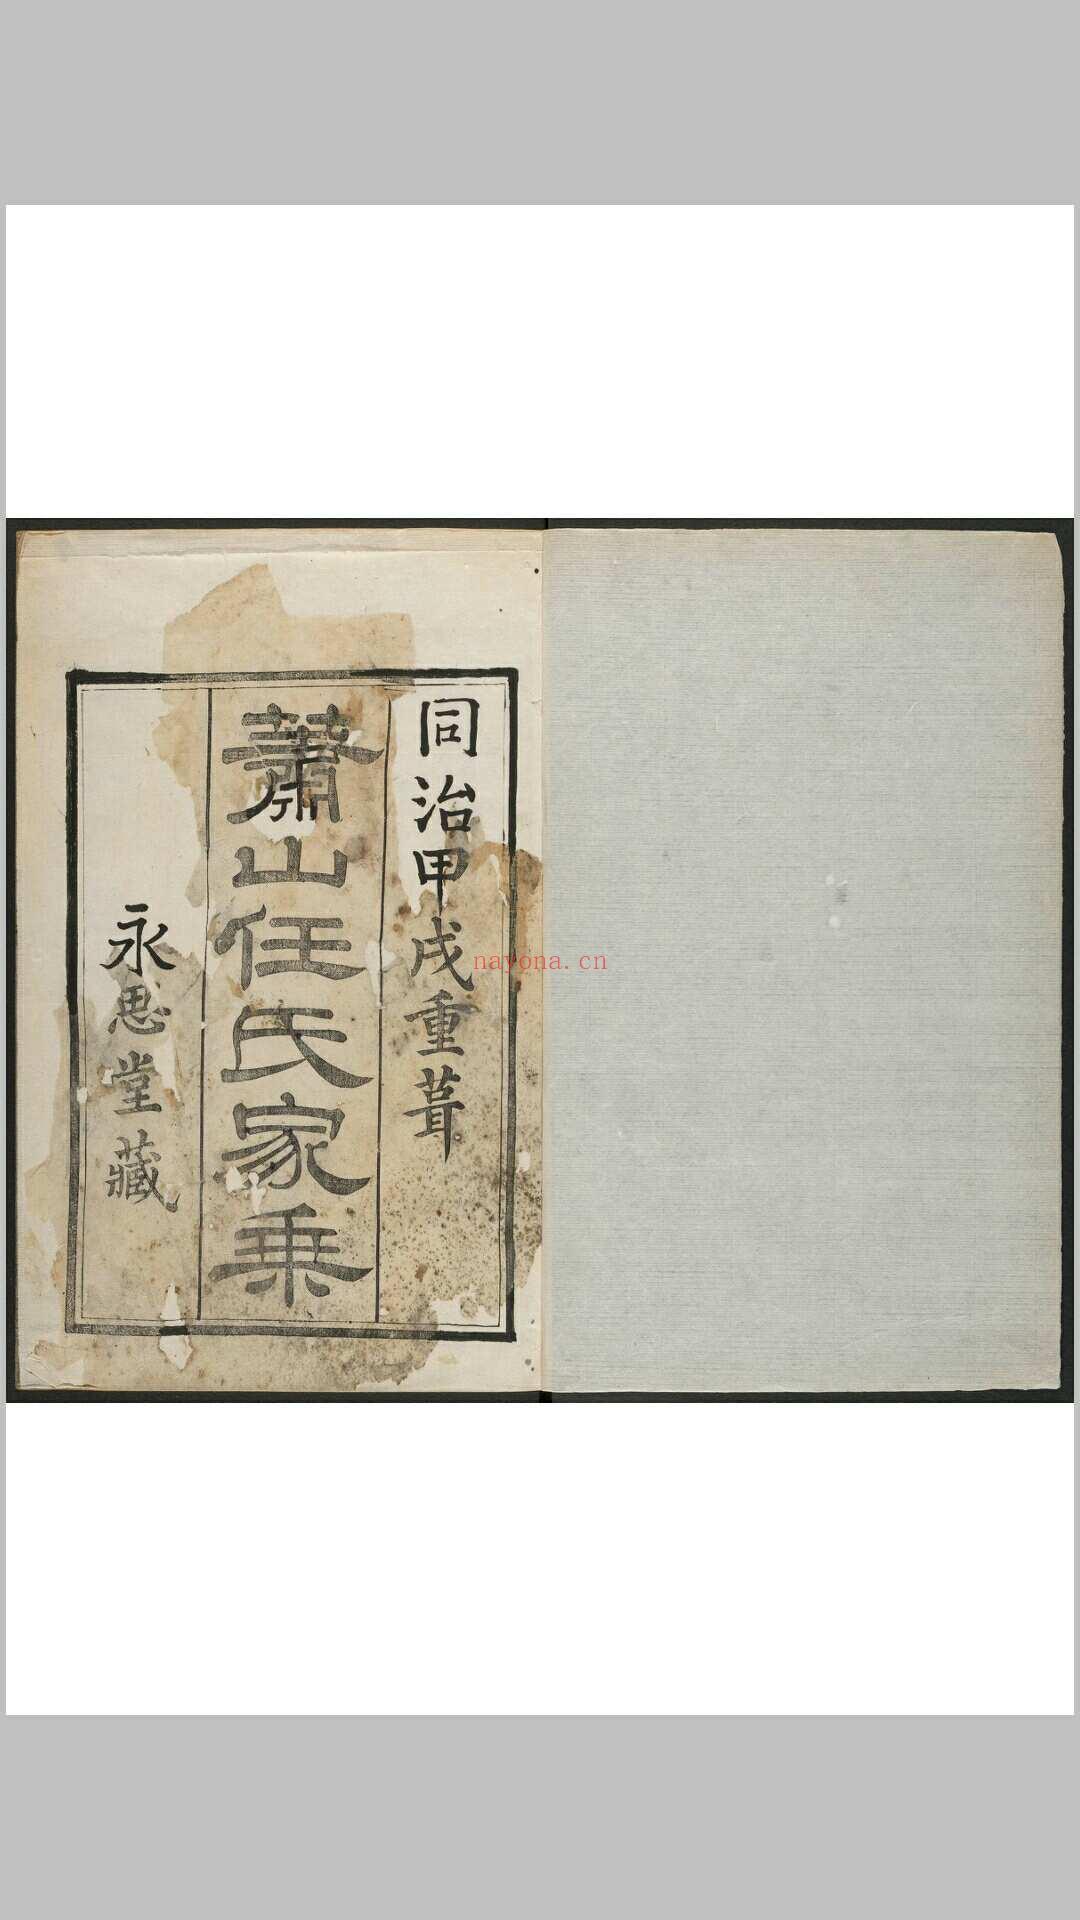 同治甲戌重葺
蕭山任氏家乗
永思堂藏
nayona.cn